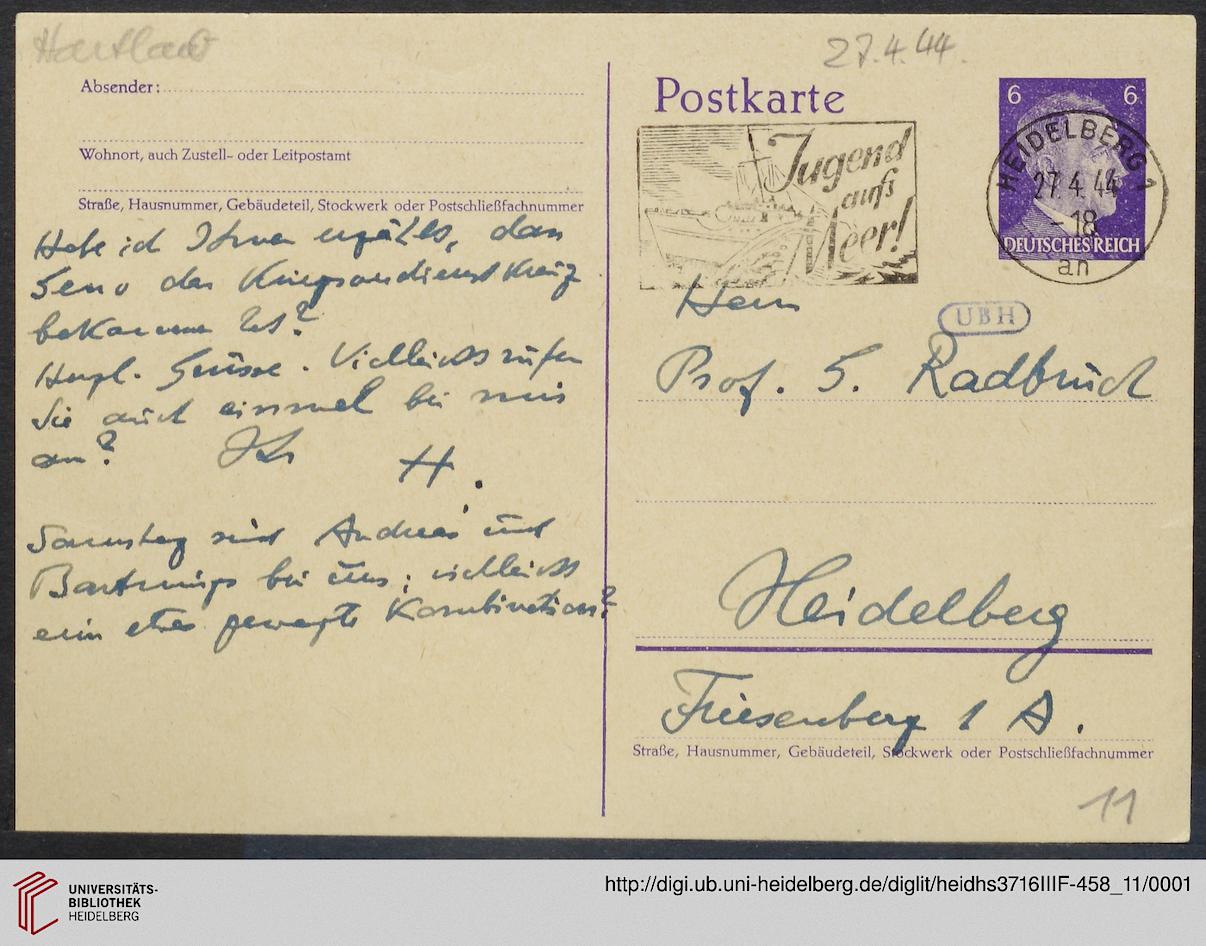 Hartlaub
27.4.44.
Absender:
Wohnort, auch Zustell- oder Leitpostamt
Straße, Hausnummer, Gebäudeteil, Stockwerk oder Postschließfachnummer
Habe ich Ihnen erzählt, dass
Geno das Kriegsverdienstkreuz
bekommen hat?
Herzl. Grüsse. Vielleicht rufen
Sie auch einmal bei uns
an? Ihr H.
Samstag sind Andreas und
Bartnings bei uns; vielleicht
eine etwas gewagte Kombination?
Postkarte
Jugend
aufs
Meer!
6 6
DEUTSCHES REICH
HEIDELBERG 1
27.4.44
-18
an
UBH
Herrn
Prof. G. Radbruch
Heidelberg
Friesenberg 1 A.
Straße, Hausnummer, Gebäudeteil, Stockwerk oder Postschließfachnummer
11
UNIVERSITÄTS-
BIBLIOTHEK
HEIDELBERG
http://digi.ub.uni-heidelberg.de/diglit/heidhs3716IIIF-458_11/0001